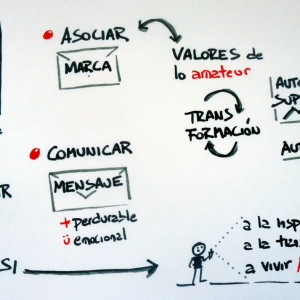 ASOCIAR
MARCA
VALORES de
lo amateur
TRANS
FORMACIÓN
AUTO
SUP
COMUNICAR
MENSAJE
+ perdurable
ü emocional
AU
ER
SI
a la insp
a la t
a vivir